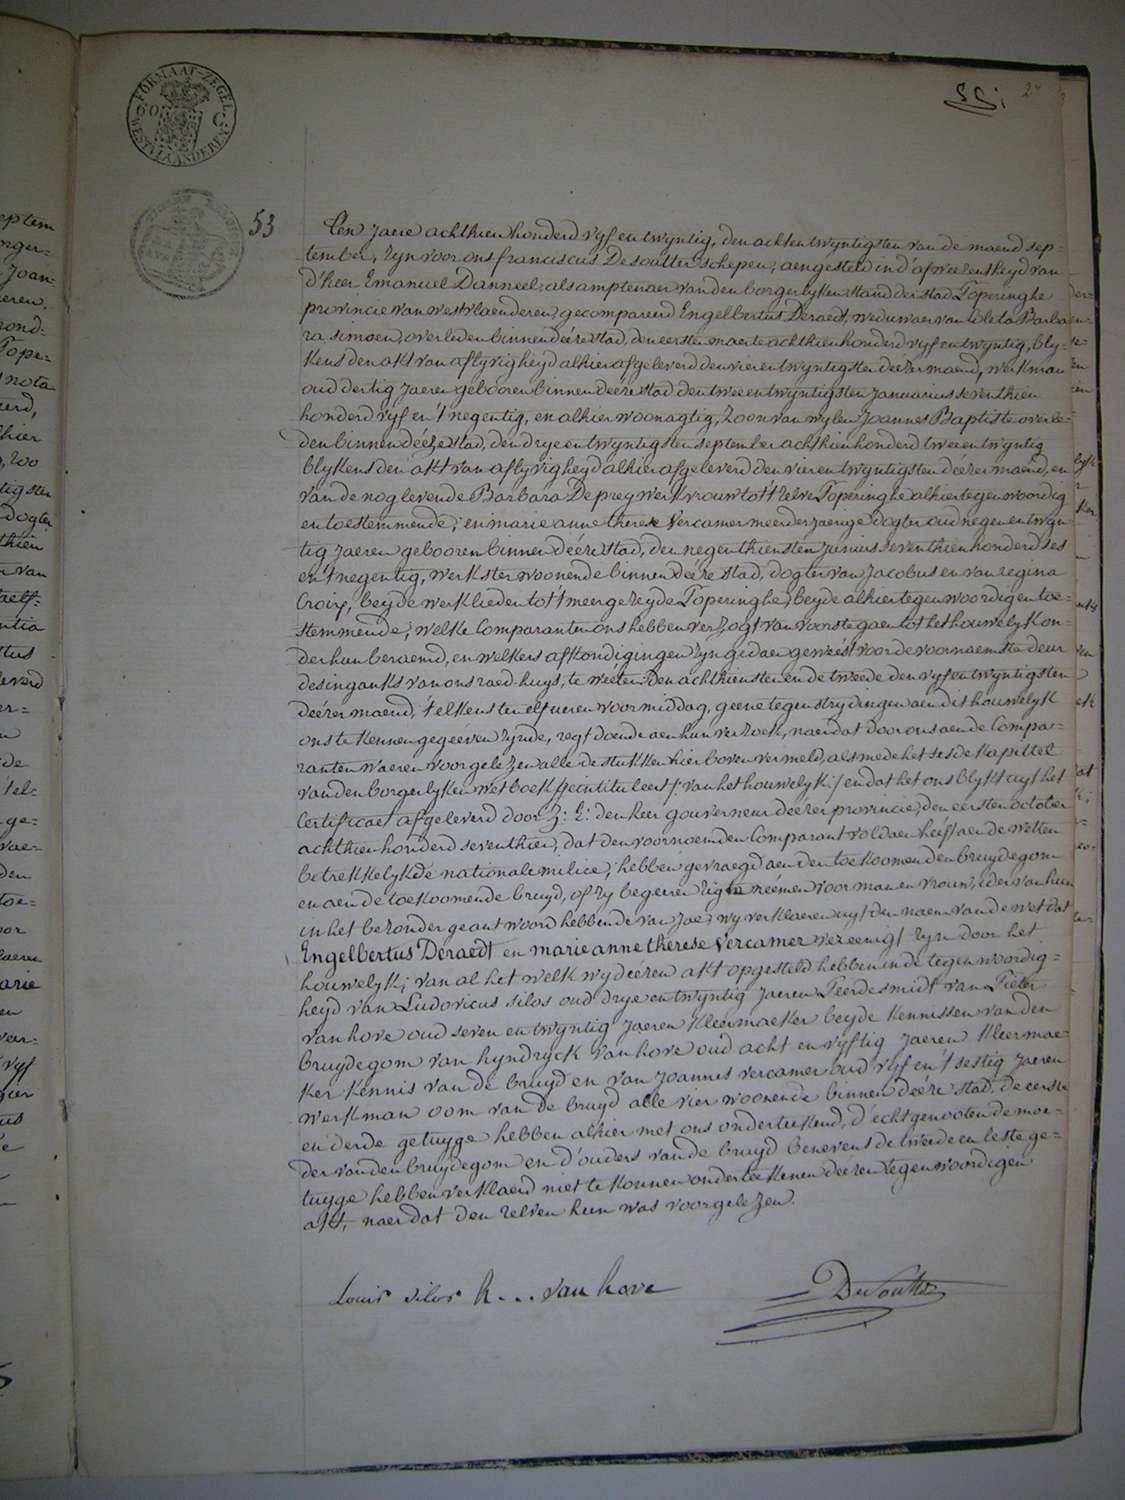 FORMAAT-ZEGEL
50 C.
WESTVLAANDEREN
53
Ten Jaere achthien honderd vyf en twyntig, den acht en twyntigsten van de maend sep-
tember, zyn voor ons franciscus Desoutter schepen, aengesteld in d'afweezenheyd van
d'heer Emanuel Danneel, als amptenaer van den borgerlyken stand der stad Poperinghe
provincie van westvlaenderen, gecompareerd Engelbertus Deraedt, weduwaer van Barba-
ra simoen, overleden binnen deéze stad, den eersten maerte achthien honderd vyf en twyntig, bly-
kens den akt van aflyvigheyd alhier afgeleverd den vier en twyntigsten deézer maend, werkman
oud dertig Jaeren gebooren binnen deéze stad den twee en twyntigsten Januarius seventhien
honderd vyf en 't negentig, en alhier woonagtig, Zoon van wylen Joannes Baptiste overle-
den binnen deéze stad, den drye en twyntigsten september achthien honderd twee en twyntig
blykens den akt van aflyvigheyd alhier afgeleverd den vier en twyntigsten deézer maend, en
van de nog levende Barbara Deprey werkvrouw tot 't zelve Poperinghe alhier tegenwoordig
en toestemmende; en marie anne therese Vercamer meerderjaerige dogter oud negen en twyn-
tig Jaeren gebooren binnen deéze stad, den negenthiensten Junius seventhien honderd ses
en 't negentig, werkster woonende binnen deéze stad, dogter van Jacobus en van regina
Croix, beyde werklieden tot 't meergezeyde Poperinghe, beyde alhier tegenwoordig en toe-
stemmende; welke Comparanten ons hebben verzogt van voorste gaen tot het houwelyk on-
der hun beraemd, en welkers afkondigingen zyn gedaen geweést voor de voornaemste deur
des ingank's van ons raed-huys, te weeten: den achthiensten en de tweede den vyf en twyntigsten
deézer maend, t'elkens ten elf ueren voormiddag, geene tegenstrydingen aen dit houwelyk
ons te kennen gegeeven zynde, regt doende aen hun verzoek, naer dat door ons aen de Compa-
ranten waeren voorgelezen alle de stukken hier boven vermeld, alsmede het sesde kapittel
van den borgerlyken wetboek geintituleert van het houwelyk; en dat het ons blykt uyt het
Certificaet afgeleverd door Z: E: den heer gouverneur deézer provincie, den eersten october
achthien honderd seventhien, dat den voornoemden Comparant voldaen heéft aen de wetten
betrekkelyk dé nationale milice; hebben gevraegd aen den toekoomenden bruydegom
en aen de toekoomende bruyd, of zy begeeren zig te neémen voor man en vrouw, ider van hun
in het bezonder geantwoord hebbende van Jae; wy verklaeren uyt den naem van de wet dat
Engelbertus Deraedt en marie anne therese Vercamer vereenigt zyn door het
houwelyk; van al het welk wy deézen akt opgesteld hebben in de tegenwoordig-
heyd van Ludovicus silos oud drye en twyntig Jaeren Peerdesmidt van Pieter
van hove oud seven en twyntig Jaeren kleermaeker beyde kennissen van den
bruydegom van hyndryck van hove oud acht en vyftig Jaeren kleermae-
ker kennis van de bruyd en van Joannes vercamer oud vyf en 't sestig Jaeren
werkman oom van de bruyd alle vier woonende binnen deéze stad, de eerste
en derde getuyge hebben alhier met ons onderteekend, d'echtgenooten de moe-
der van den bruydegom en d'ouders van de bruyd benevens de tweede en leste ge-
tuyge hebben verklaerd niet te konnen onderteekenen deézen tegenwoordigen
akt, naer dat den zelven hun was voorgelezen.
Louis silos h... van hove DeSoutter